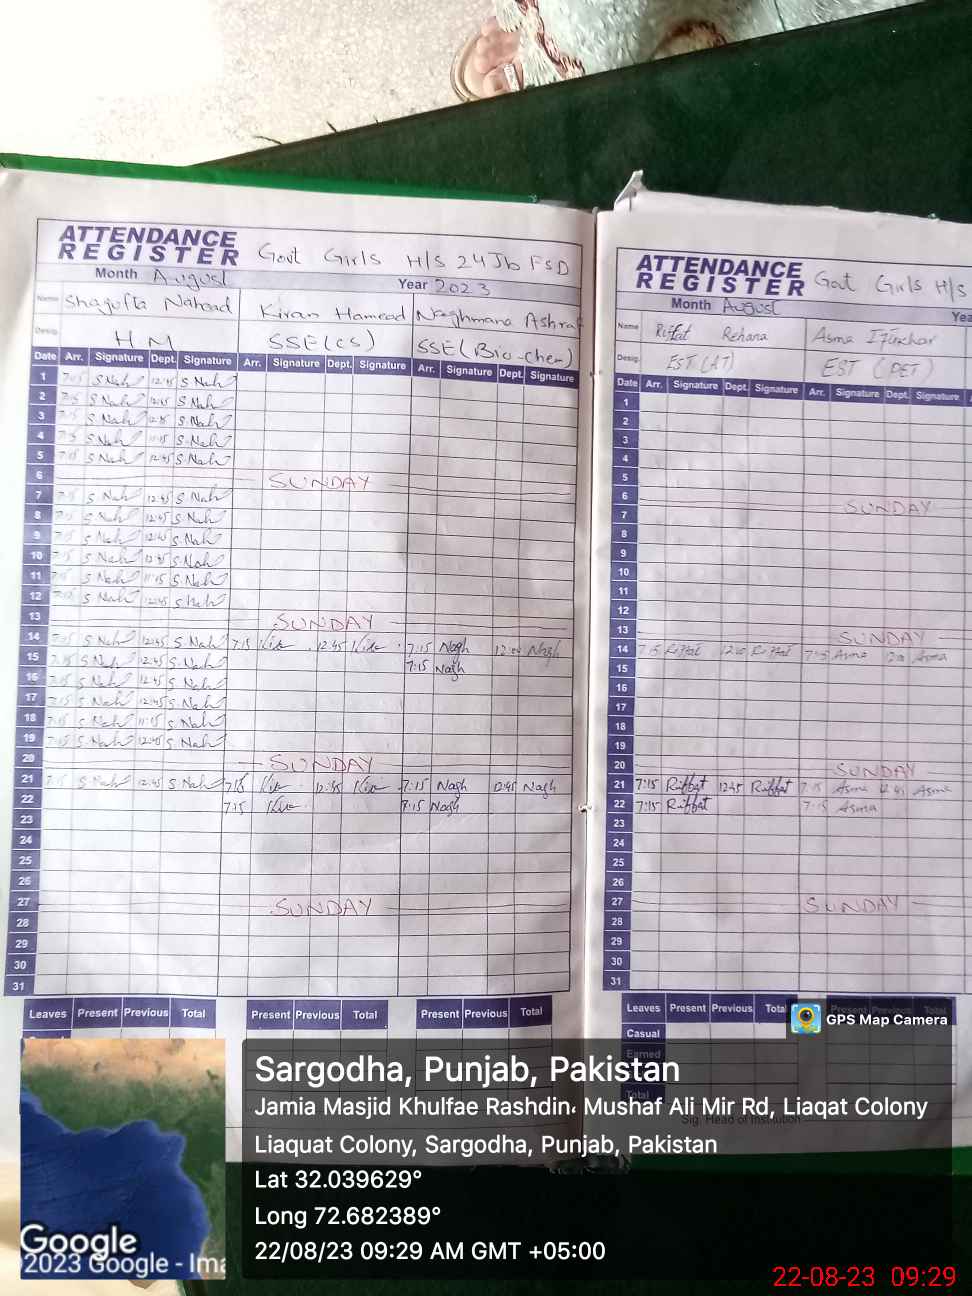 ATTENDANCE
REGISTER Govt Girls H/S 24Jb FSD
Month August Year 2023
Name Shagufta Naheed Kiran Hameed Naghmana Ashraf
Desig. H M SSE(CS) SSE(Bio-Chem)
Date Arr. Signature Dept. Signature Arr. Signature Dept. Signature Arr. Signature Dept. Signature
1 7:15 S.Nah 12:45 S.Nah
2 7:15 S.Nah 12:45 S.Nah
3 7:15 S.Nah 12:45 S.Nah
4 7:15 S.Nah 11:15 S.Nah
5 7:15 S.Nah 12:45 S.Nah
6 SUNDAY
7 7:15 S.Nah 12:45 S.Nah
8 7:15 S.Nah 12:45 S.Nah
9 7:15 S.Nah 12:45 S.Nah
10 7:15 S.Nah 12:45 S.Nah
11 7:15 S.Nah 11:15 S.Nah
12 7:15 S.Nah 12:45 S.Nah
13 SUNDAY
14 7:15 S.Nah 12:45 S.Nah 7:15 Kir 12:45 Kir 7:15 Nagh 12:00 Nagh
15 7:15 S.Nah 12:45 S.Nah 7:15 Nagh
16 7:15 S.Nah 12:45 S.Nah
17 7:15 S.Nah 12:45 S.Nah
18 7:15 S.Nah 11:15 S.Nah
19 7:15 S.Nah 12:45 S.Nah
20 SUNDAY
21 7:15 S.Nah 12:45 S.Nah 7:15 Kir 12:45 Kir 7:15 Nagh 12:45 Nagh
22 7:15 Kir 7:15 Nagh
23
24
25
26
27 SUNDAY
28
29
30
31
Leaves Present Previous Total Present Previous Total Present Previous Total
ATTENDANCE
REGISTER Govt Girls H/S
Month August
Name Riffat Rehana Asma Iftikhar
Desig. EST(AT) EST (PET)
Date Arr. Signature Dept. Signature Arr. Signature Dept. Signature
1
2
3
4
5
6 SUNDAY
7
8
9
10
11
12
13 SUNDAY
14 7:15 Riffat 12:00 Riffat 7:15 Asma 12:00 Asma
15
16
17
18
19
20 SUNDAY
21 7:15 Riffat 12:45 Riffat 7:15 Asma 12:45 Asma
22 7:15 Riffat 7:15 Asma
23
24
25
26
27 SUNDAY
28
29
30
31
Leaves Present Previous Total Present Previous Total
Casual
Earned
Total
Sig. Head of Institution
GPS Map Camera
Sargodha, Punjab, Pakistan
Jamia Masjid Khulfae Rashdin، Mushaf Ali Mir Rd, Liaqat Colony
Liaquat Colony, Sargodha, Punjab, Pakistan
Lat 32.039629°
Long 72.682389°
22/08/23 09:29 AM GMT +05:00
Google
2023 Google - Ima
22-08-23 09:29